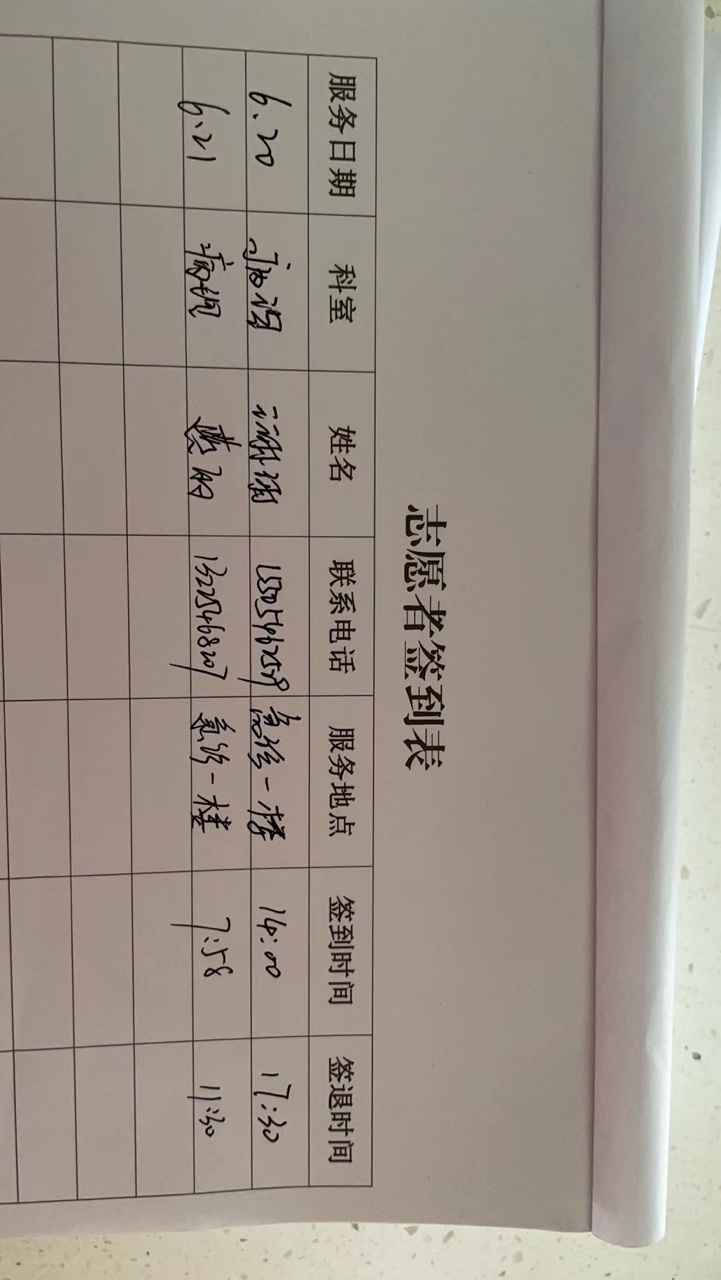 志愿者签到表
服务日期 科室 姓名 联系电话 服务地点 签到时间 签退时间
6.20 急诊一楼 14:00 17:30
6.21 病理 13225468207 急诊一楼 7:58 11:30